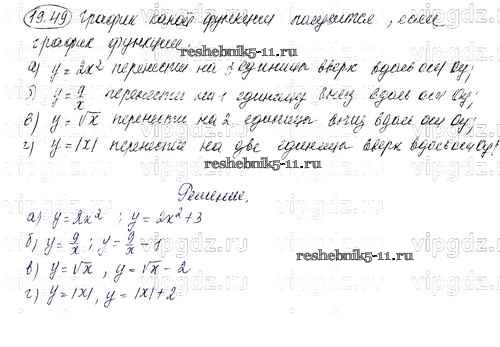 19.49 График какой функции получится, если
график функции:
reshebnik5-11.ru
а) y = 2x² перенести на 3 единицы вверх вдоль оси Oy;
б) y = 9/x перенести на 1 единицу вниз вдоль оси Oy;
в) y = √x перенести на 2 единицы вниз вдоль оси Oy;
г) y = |x| перенести на две единицы вверх вдоль оси Oy?
reshebnik5-11.ru
Решение.
а) y = 2x² ; y = 2x² + 3
б) y = 9/x ; y = 9/x - 1
reshebnik5-11.ru
в) y = √x , y = √x - 2
г) y = |x| , y = |x| + 2
vipgdz.ru